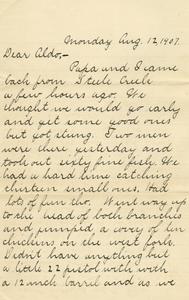 Monday Aug. 12, 1907.
Dear Aldo,-
Papa and I came
back from Steele Creek
a few hours ago. We
thought we would go early
and get some good ones
but got stung. Two men
were there yesterday and
took out sixty fine fish. We
had a hard time catching
thirteen small ones. Had
lots of fun tho. Went way up
to the head of both branches
and jumped a covey of ten
chickens on the west fork.
Didn't have anything but
a little 22 pistol with
a 12 inch barrel and as we